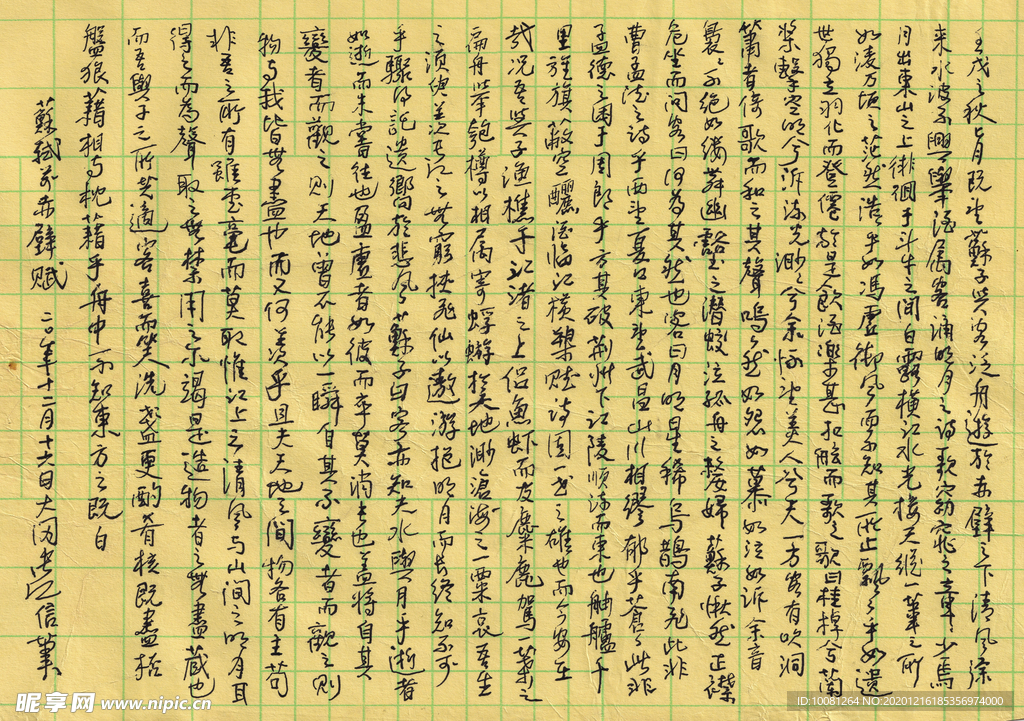 壬戌之秋七月既望蘇子與客泛舟遊於赤壁之下清風徐
来水波不興舉酒屬客誦明月之詩歌窈窕之章少焉
月出東山之上徘徊于斗牛之間白露橫江水光接天縱一葦之所
如淩万頃之茫然浩乎如馮虛御風而不知其所止飄飄乎如遺
世獨立羽化而登僊於是飲酒樂甚扣舷而歌之歌曰桂棹兮蘭
槳擊空明兮泝流光渺渺兮余懷望美人兮天一方客有吹洞
簫者倚歌而和之其聲嗚嗚然如怨如慕如泣如訴余音
裊裊不绝如縷舞幽壑之潛蛟泣孤舟之嫠婦蘇子愀然正襟
危坐而問客曰何為其然也客曰月明星稀烏鵲南飛此非
曹孟德之詩乎西望夏口東望武昌山川相繆郁乎蒼蒼此非
孟德之困于周郎乎方其破荆州下江陵順流而東也舳艫千
里旌旗蔽空釃酒临江横槊賦诗固一世之雄也而今安在
哉况吾與子漁樵于江渚之上侣魚虾而友麋鹿駕一葉之
扁舟举匏樽以相属寄蜉蝣於天地渺滄海之一粟哀吾生
之須臾羡長江之無窮挾飛仙以遨游抱明月而長终知不可
乎驟得託遺響於悲風蘇子曰客亦知夫水與月乎逝者
如逝而未嘗往也盈虛者如彼而卒莫消長也盖将自其
變者而觀之则天地曾不能以一瞬自其不變者而觀之则
物与我皆無盡也而又何羡乎且夫天地之間物各有主苟
非吾之所有雖一毫而莫取惟江上之清風与山間之明月耳
得之而為聲取之無禁用之不竭是造物者之無盡藏也
而吾與子之所共適客喜而笑洗盏更酌肴核既盡杯
盤狼藉相与枕藉乎舟中不知東方之既白
蘇軾前赤壁赋
二〇年十二月十六日 信筆
昵享网 www.nipic.cn
ID:10081264 NO:20201216185356974000